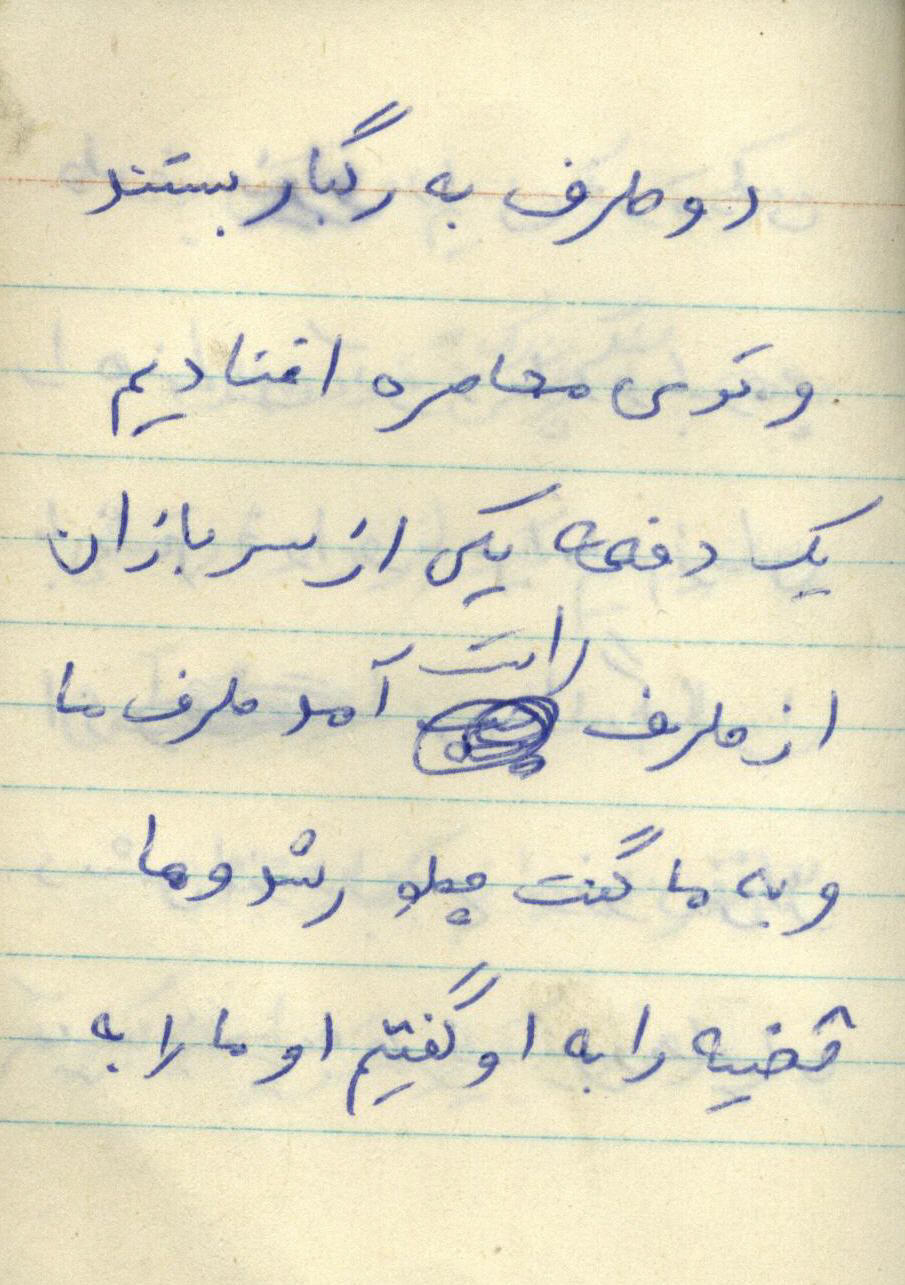 دو طرف به رگبار بستند
و توی محاصره افتادیم
یک دفعه یکی از سربازان
از طرف راست آمد طرف ما
و به ما گفت چطو رشد و ما
قضیه را به او گفتیم او ما را به